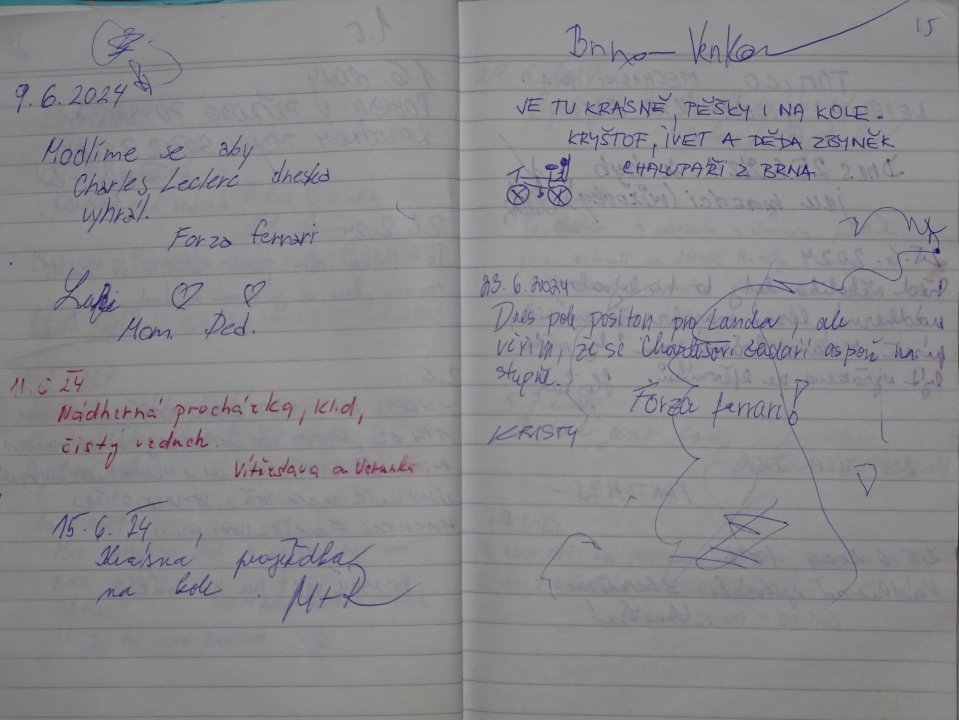 9.6.2024
Modlíme se aby
Charles Leclerc dneska
vyhrál.
Forza ferrari
Mom. Ded.
11.6 24
Nádherná procházka, klid,
čistý vzduch.
Vítězslava a Verunka
15.6.24,
Krásná projížďka
na kole.
M+R
15
Brno - Venkov
JE TU KRÁSNĚ, PĚŠKY I NA KOLE.
KRYŠTOF, IVET A DĚDA ZBYNĚK
CHALUPÁŘI Z BRNA
23.6.2024
Dnes pole position pro Landa, ale
věřím, že se Charlesovi zadaří aspoň na
stupně.
Forza ferrari!
KRISTY